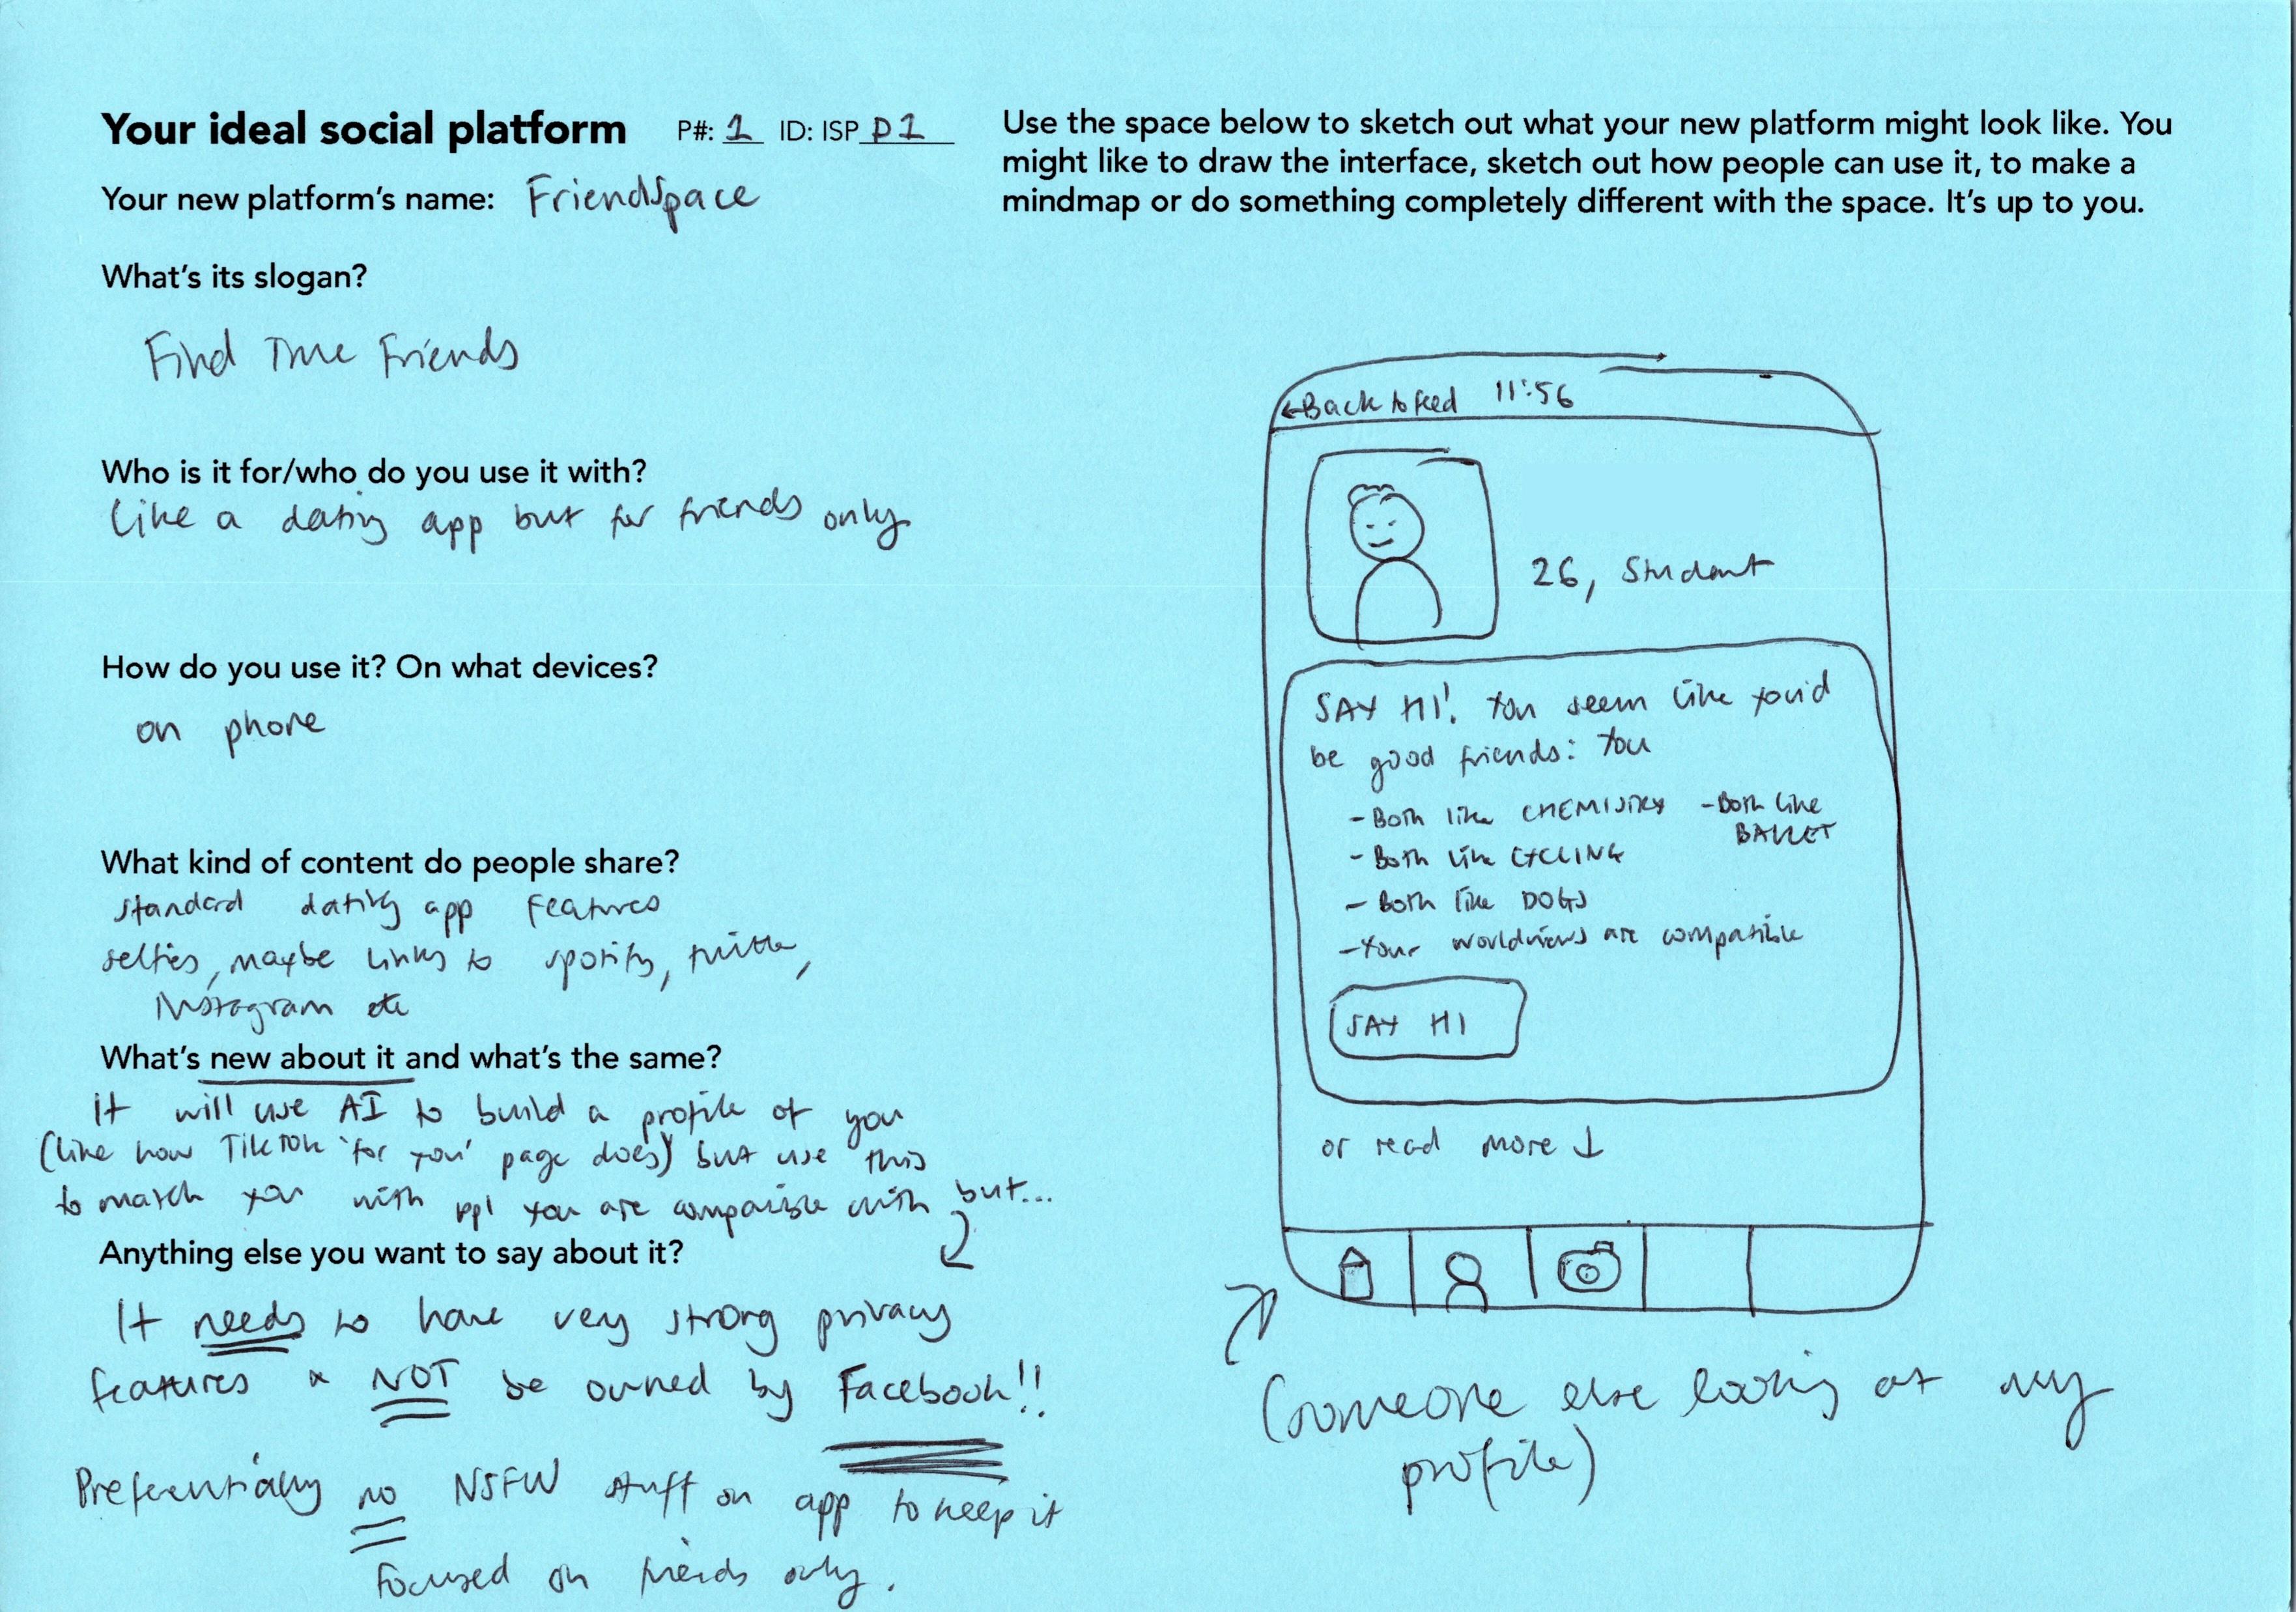 Your ideal social platform P#: 1 ID: ISP D1
Your new platform's name: FriendSpace
What's its slogan?
Find True Friends
Who is it for/who do you use it with?
Like a dating app but for friends only
How do you use it? On what devices?
on phone
What kind of content do people share?
standard dating app features
selfies, maybe links to spotify, twitter,
Instagram etc
What's new about it and what's the same?
It will use AI to build a profile of you
(like how TikTok 'for you' page does) but use this
to match you with ppl you are compatible with but...
Anything else you want to say about it?
It needs to have very strong privacy
features & NOT be owned by Facebook!!
Preferentially no NSFW stuff on app to keep it
focused on friends only.
Use the space below to sketch out what your new platform might look like. You
might like to draw the interface, sketch out how people can use it, to make a
mindmap or do something completely different with the space. It's up to you.
←Back to feed 11:56
26, Student
SAY HI! You seem like you'd
be good friends: You
- Both like CHEMISTRY - Both like
BALLET
- Both like CYCLING
- Both like DOGS
- Your worldviews are compatible
SAY HI
or read more ↓
(someone else looking at my
profile)